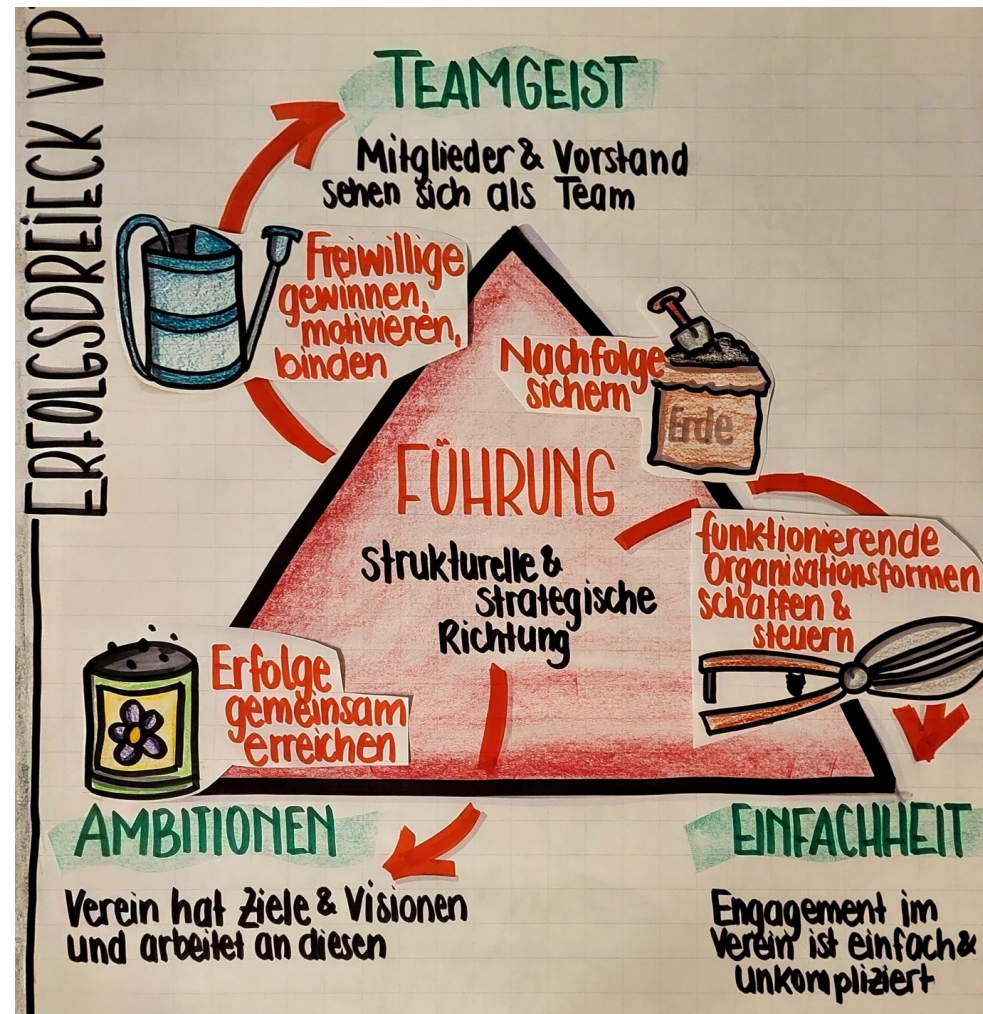 ERFOLGSDREIECK VIP
TEAMGEIST
Mitglieder & Vorstand
sehen sich als Team
Freiwillige
gewinnen,
motivieren,
binden
Nachfolge
sichern
Erde
FÜHRUNG
Strukturelle &
strategische
Richtung
funktionierende
Organisationsformen
schaffen &
steuern
Erfolge
gemeinsam
erreichen
AMBITIONEN
Verein hat Ziele & Visionen
und arbeitet an diesen
EINFACHHEIT
Engagement im
Verein ist einfach &
unkompliziert